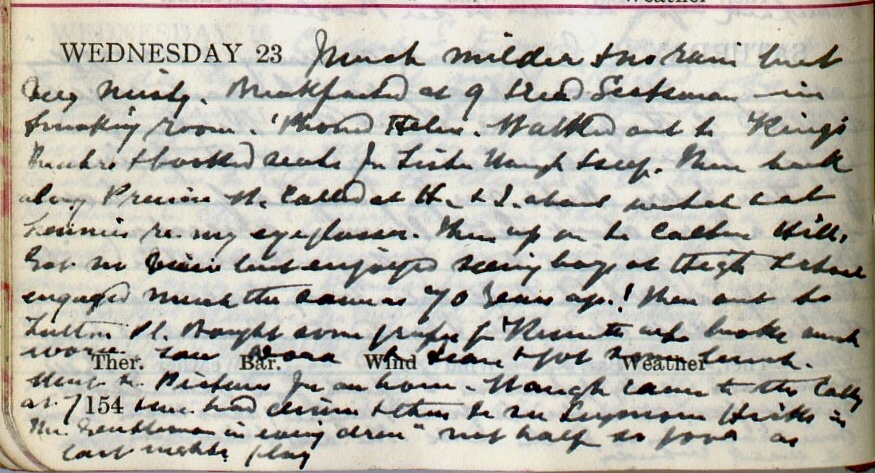 Weather
WEDNESDAY 23 Much milder & no rain but
very misty. Breakfasted at 9 & read Scotsman in
Smoking room. 'Phoned Helen. Walked out to King's
Theatre & booked seats for Waugh & self. Then back
along Princes St. Called at H. & L. about watch & at
Lennies re. my eyeglasses. Then up on to Calton Hill.
Got no view but enjoyed seeing boys at High School
engaged much the same as 70 years ago! Then out to
Pl. Bought some grapes for who looks much
worse. Saw & got some lunch.
Ther. Bar. Wind Weather
Went to Pictures for an hour. Waugh came to the Caley
at 7 & we had dinner & then to see Seymour Hicks in
154
"The Gentleman in evening dress" not half so good as
last night's play